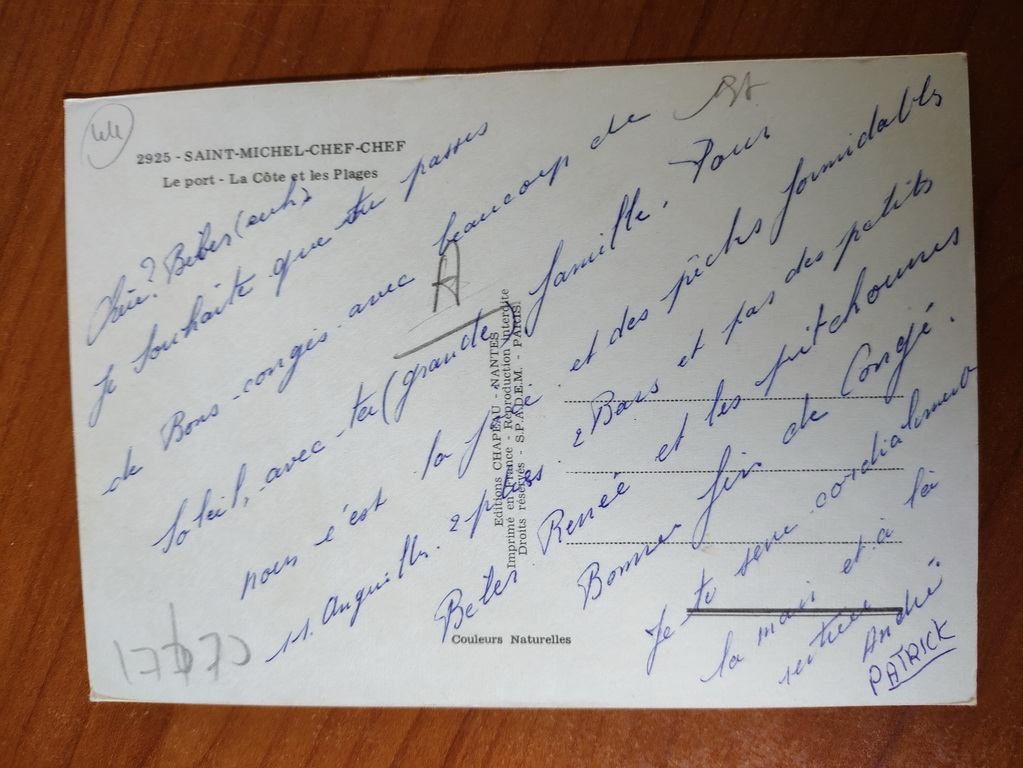 44
2925 - SAINT-MICHEL-CHEF-CHEF
Le port - La Côte et les Plages
? Béber (
Je souhaite que tu passes
de Bons congés avec beaucoup de
soleil, avec ta (grande famille. Pour
nous c'est la et des pêches formidables
11. Anguilles. 2 2 Bars et pas des petits
Béber Renée et les pitchounes
Bonne fin de Congé.
Je te serre cordialement
la main et à la
rentrée
André
PATRICK
A
Editions CHAPEAU - NANTES
Imprimé en France - Reproduction interdite
Droits réservés - S.P.A.D.E.M. - PARIS
Couleurs Naturelles